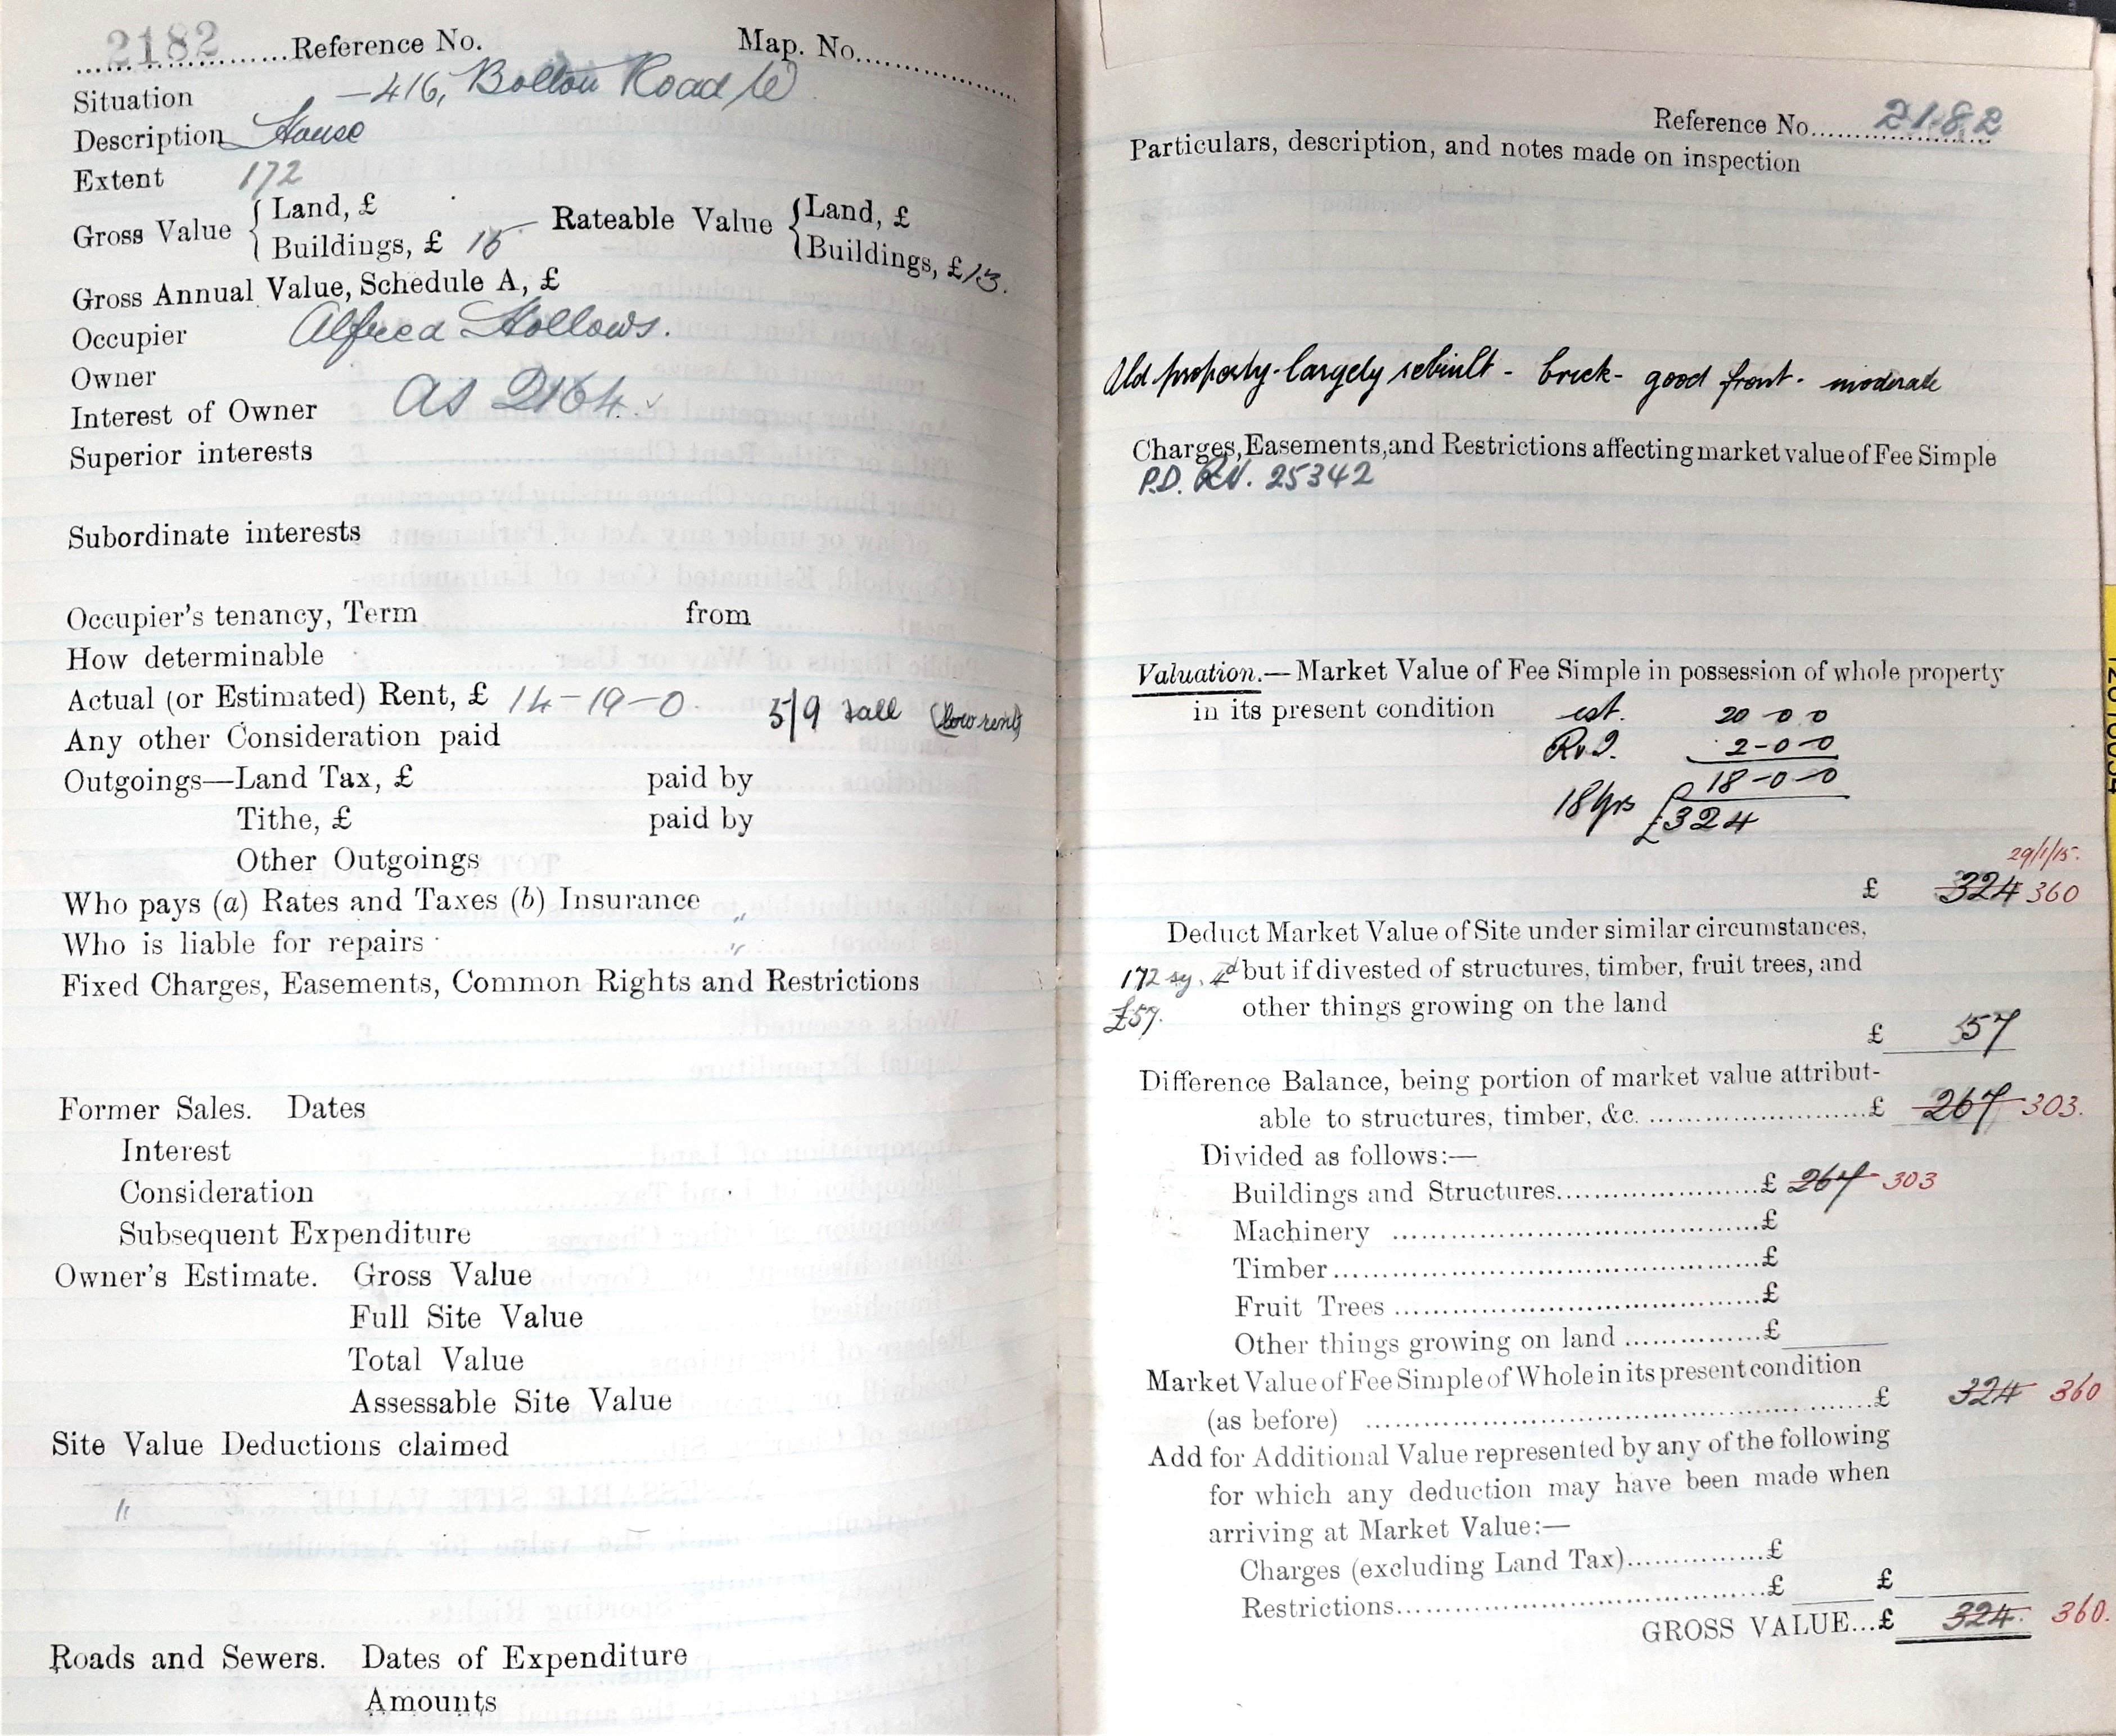 2182 Reference No. Map. No.
Situation – 416, Bolton Road W
Description House
Extent 172
Gross Value { Land, £ Rateable Value { Land, £
Buildings, £ 15 Buildings, £ 13.
Gross Annual Value, Schedule A, £
Occupier Alfred Hollows.
Owner
Interest of Owner as 2164.
Superior interests
Subordinate interests
Occupier's tenancy, Term from
How determinable
Actual (or Estimated) Rent, £ 14-19-0. 5/9 (low rent)
Any other Consideration paid
Outgoings—Land Tax, £ paid by
Tithe, £ paid by
Other Outgoings
Who pays (a) Rates and Taxes (b) Insurance "
Who is liable for repairs "
Fixed Charges, Easements, Common Rights and Restrictions
Former Sales. Dates
Interest
Consideration
Subsequent Expenditure
Owner's Estimate. Gross Value
Full Site Value
Total Value
Assessable Site Value
Site Value Deductions claimed
"
Roads and Sewers. Dates of Expenditure
Amounts
Reference No. 2182
Particulars, description, and notes made on inspection
Old property - largely rebuilt - brick - good front - moderate
Charges, Easements, and Restrictions affecting market value of Fee Simple
P.D. RN. 25342
Valuation.—Market Value of Fee Simple in possession of whole property
in its present condition est. 20-0-0
2-0-0
18-0-0
18 yrs £324
29/1/15.
£ 324 360
Deduct Market Value of Site under similar circumstances,
172 sy. 4d but if divested of structures, timber, fruit trees, and
£57. other things growing on the land
£ 57
Difference Balance, being portion of market value attribut-
able to structures, timber, &c. £ 267 303.
Divided as follows:—
Buildings and Structures £ 267 303
Machinery £
Timber £
Fruit Trees £
Other things growing on land £
Market Value of Fee Simple of Whole in its present condition
(as before) £ 324 360
Add for Additional Value represented by any of the following
for which any deduction may have been made when
arriving at Market Value:—
Charges (excluding Land Tax) £
Restrictions £ £
GROSS VALUE...£ 324. 360.